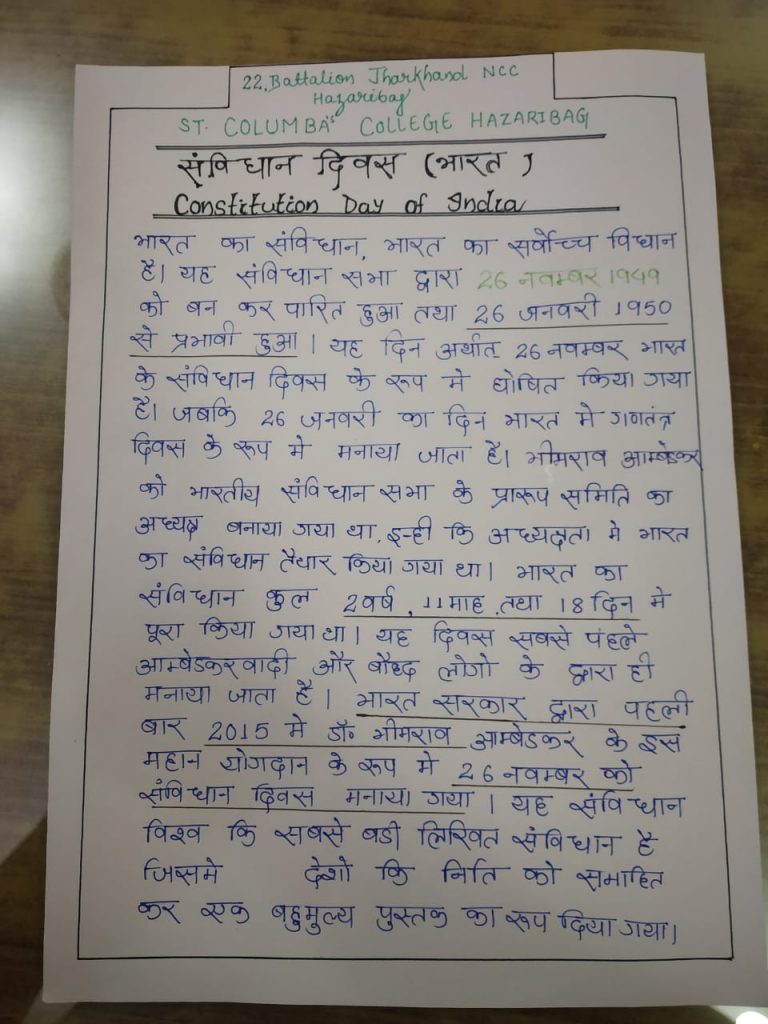 22, Battalion Jharkhand NCC
Hazaribag
ST. COLUMBA'S COLLEGE HAZARIBAG
संविधान दिवस (भारत)
Constitution Day of India
भारत का संविधान, भारत का सर्वोच्च विधान
है। यह संविधान सभा द्वारा 26 नवम्बर 1949
को बन कर पारित हुआ तथा 26 जनवरी 1950
से प्रभावी हुआ। यह दिन अर्थात 26 नवम्बर भारत
के संविधान दिवस के रूप मे घोषित किया गया
है। जबकि 26 जनवरी का दिन भारत मे गणतंत्र
दिवस के रूप मे मनाया जाता है। भीमराव आम्बेडकर
को भारतीय संविधान सभा के प्रारूप समिति का
अध्यक्ष बनाया गया था, इन्ही कि अध्यक्षता मे भारत
का संविधान तैयार किया गया था। भारत का
संविधान कुल 2 वर्ष, 11 माह, तथा 18 दिन मे
पूरा किया गया था। यह दिवस सबसे पहले
आम्बेडकरवादी और बौध्द लोगो के द्वारा ही
मनाया जाता है। भारत सरकार द्वारा पहली
बार 2015 मे डॉ॰ भीमराव आम्बेडकर के इस
महान योगदान के रूप मे 26 नवम्बर को
संविधान दिवस मनाया गया। यह संविधान
विश्व कि सबसे बडी लिखित संविधान है
जिसमे देशो कि निति को समाहित
कर एक बहुमुल्य पुस्तक का रूप दिया गया।